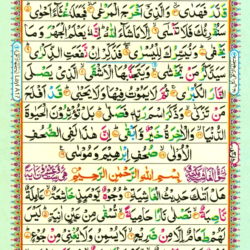 قَدَّرَ فَهَدٰى وَالَّذِیْۤ اَخْرَجَ الْمَرْعٰى فَجَعَلَهٗ غُثَآءً اَحْوٰى
سَنُقْرِئُكَ فَلَا تَنْسٰۤى اِلَّا مَا شَآءَ اللّٰهُ اِنَّهٗ یَعْلَمُ الْجَهْرَ وَمَا
یَخْفٰى وَنُیَسِّرُكَ لِلْیُسْرٰى فَذَكِّرْ اِنْ نَّفَعَتِ الذِّكْرٰى
سَیَذَّكَّرُ مَنْ یَّخْشٰى وَیَتَجَنَّبُهَا الْاَشْقَى الَّذِیْ یَصْلَى
النَّارَ الْكُبْرٰى ثُمَّ لَا یَمُوْتُ فِیْهَا وَلَا یَحْیٰى قَدْ اَفْلَحَ
مَنْ تَزَكّٰى وَذَكَرَ اسْمَ رَبِّهٖ فَصَلّٰى بَلْ تُؤْثِرُوْنَ الْحَیٰوةَ
الدُّنْیَا وَالْاٰخِرَةُ خَیْرٌ وَّاَبْقٰى اِنَّ هٰذَا لَفِی الصُّحُفِ
الْاُوْلٰى صُحُفِ اِبْرٰهِیْمَ وَمُوْسٰى
بِسْمِ اللّٰهِ الرَّحْمٰنِ الرَّحِیْمِ
هَلْ اَتٰىكَ حَدِیْثُ الْغَاشِیَةِ وُجُوْهٌ یَّوْمَئِذٍ خَاشِعَةٌ عَامِلَةٌ
نَّاصِبَةٌ تَصْلٰى نَارًا حَامِیَةً تُسْقٰى مِنْ عَیْنٍ اٰنِیَةٍ لَیْسَ
لَهُمْ طَعَامٌ اِلَّا مِنْ ضَرِیْعٍ لَّا یُسْمِنُ وَلَا یُغْنِیْ مِنْ جُوْعٍ